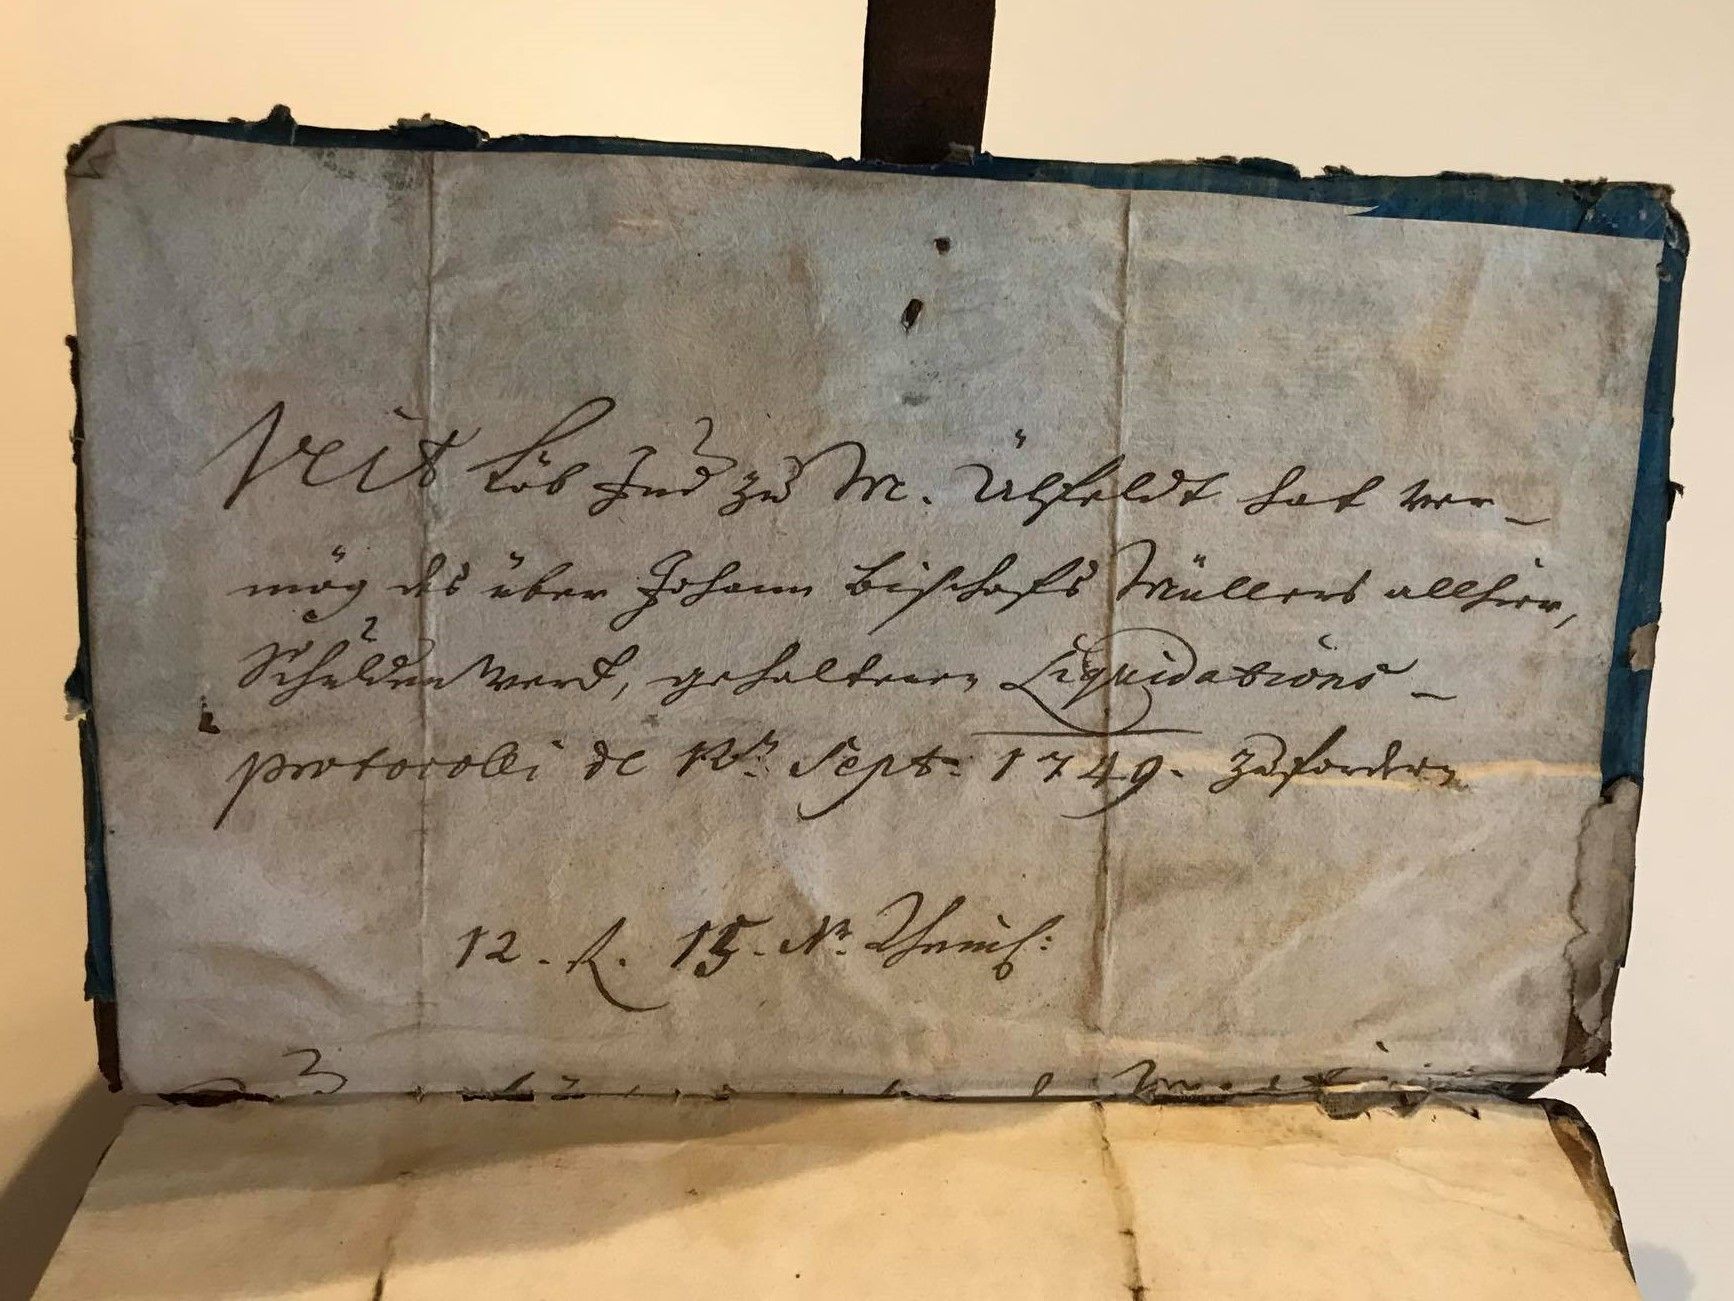 Veit Löb Jud zu M. Ühlfeldt hat ver-
mög des über Johann Bischoffs Müllers allhier,
Schulden werck, gehaltenen Liquidations-
protocolli de 12ten Sept: 1749. zufordern
12. f. 15. Xr. Rheinl: